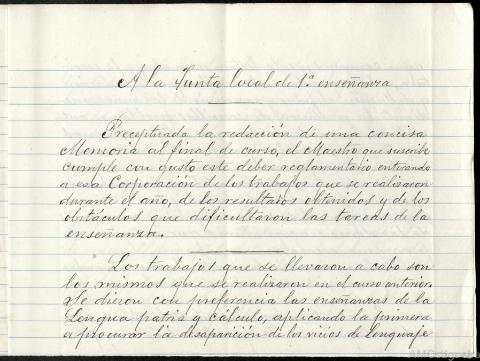 A la Junta local de 1.ª enseñanza
Preceptuada la redacción de una concisa
Memoria al final de curso, el Maestro que suscribe
cumple con gusto este deber reglamentario enterando
a esa Corporación de los trabajos que se realizaron
durante el año, de los resultados obtenidos y de los
obstáculos que dificultaron las tareas de la
enseñanza.
Los trabajos que se llevaron a cabo son
los mismos que se realizaron en el curso anterior.
Se dieron con preferencia las enseñanzas de la
Lengua patria y Cálculo, aplicando la primera
a procurar la desaparición de los vicios de lenguaje